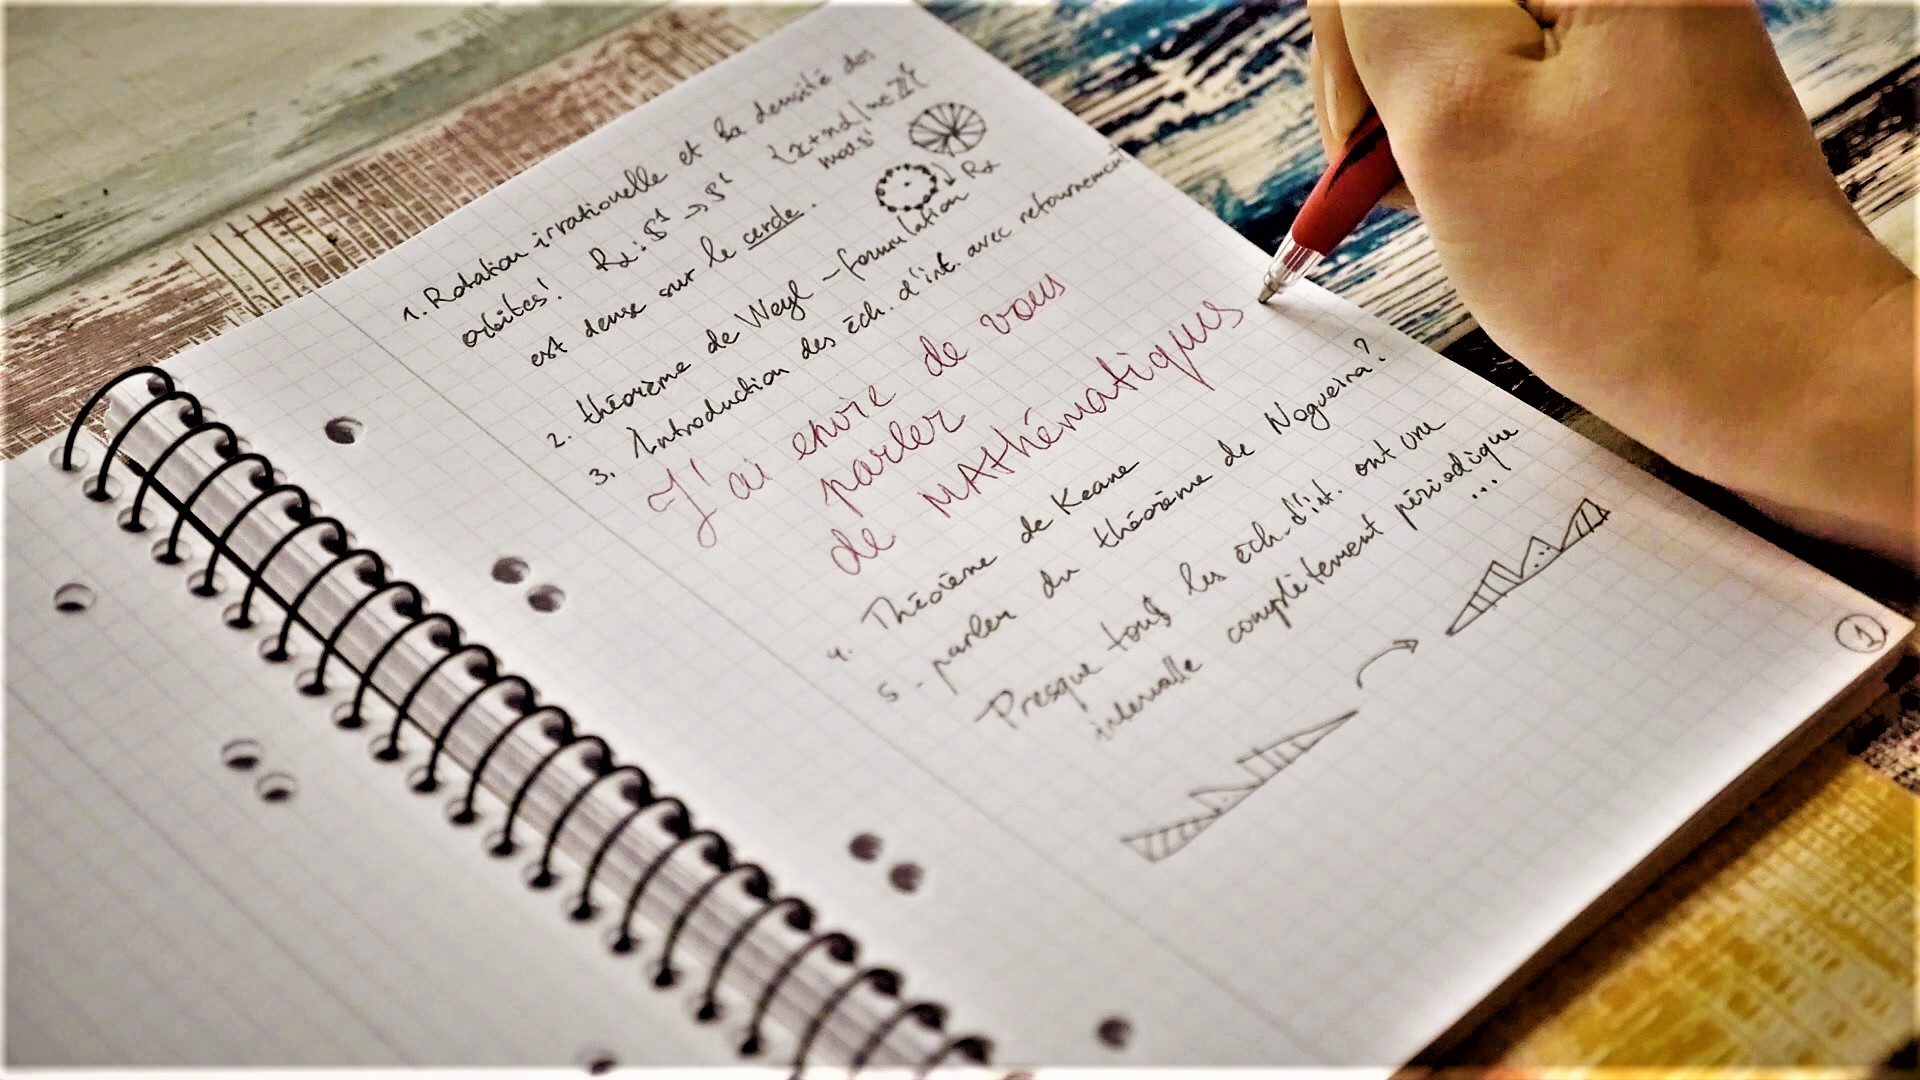 1. Rotation irrationuelle et la densité des
orbites! Rα : S¹ → S¹ {x+nα / n∈ℤ}
mod 1
est dense sur le cercle.
Rα
2. théorème de Weyl - formulation
3. Introduction des éch. d'int. avec retournement
J'ai envie de vous
parler
de MAthématiques
4. Théorème de Keane
5 - parler du théorème de Nogueira?
Presque tous les éch. d'int. ont un
intervalle complètement périodique
...
1